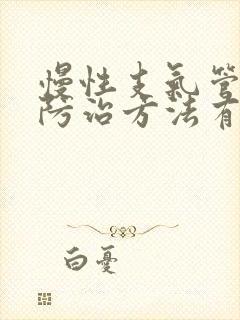 慢性支氣管
防治方法有
白憂